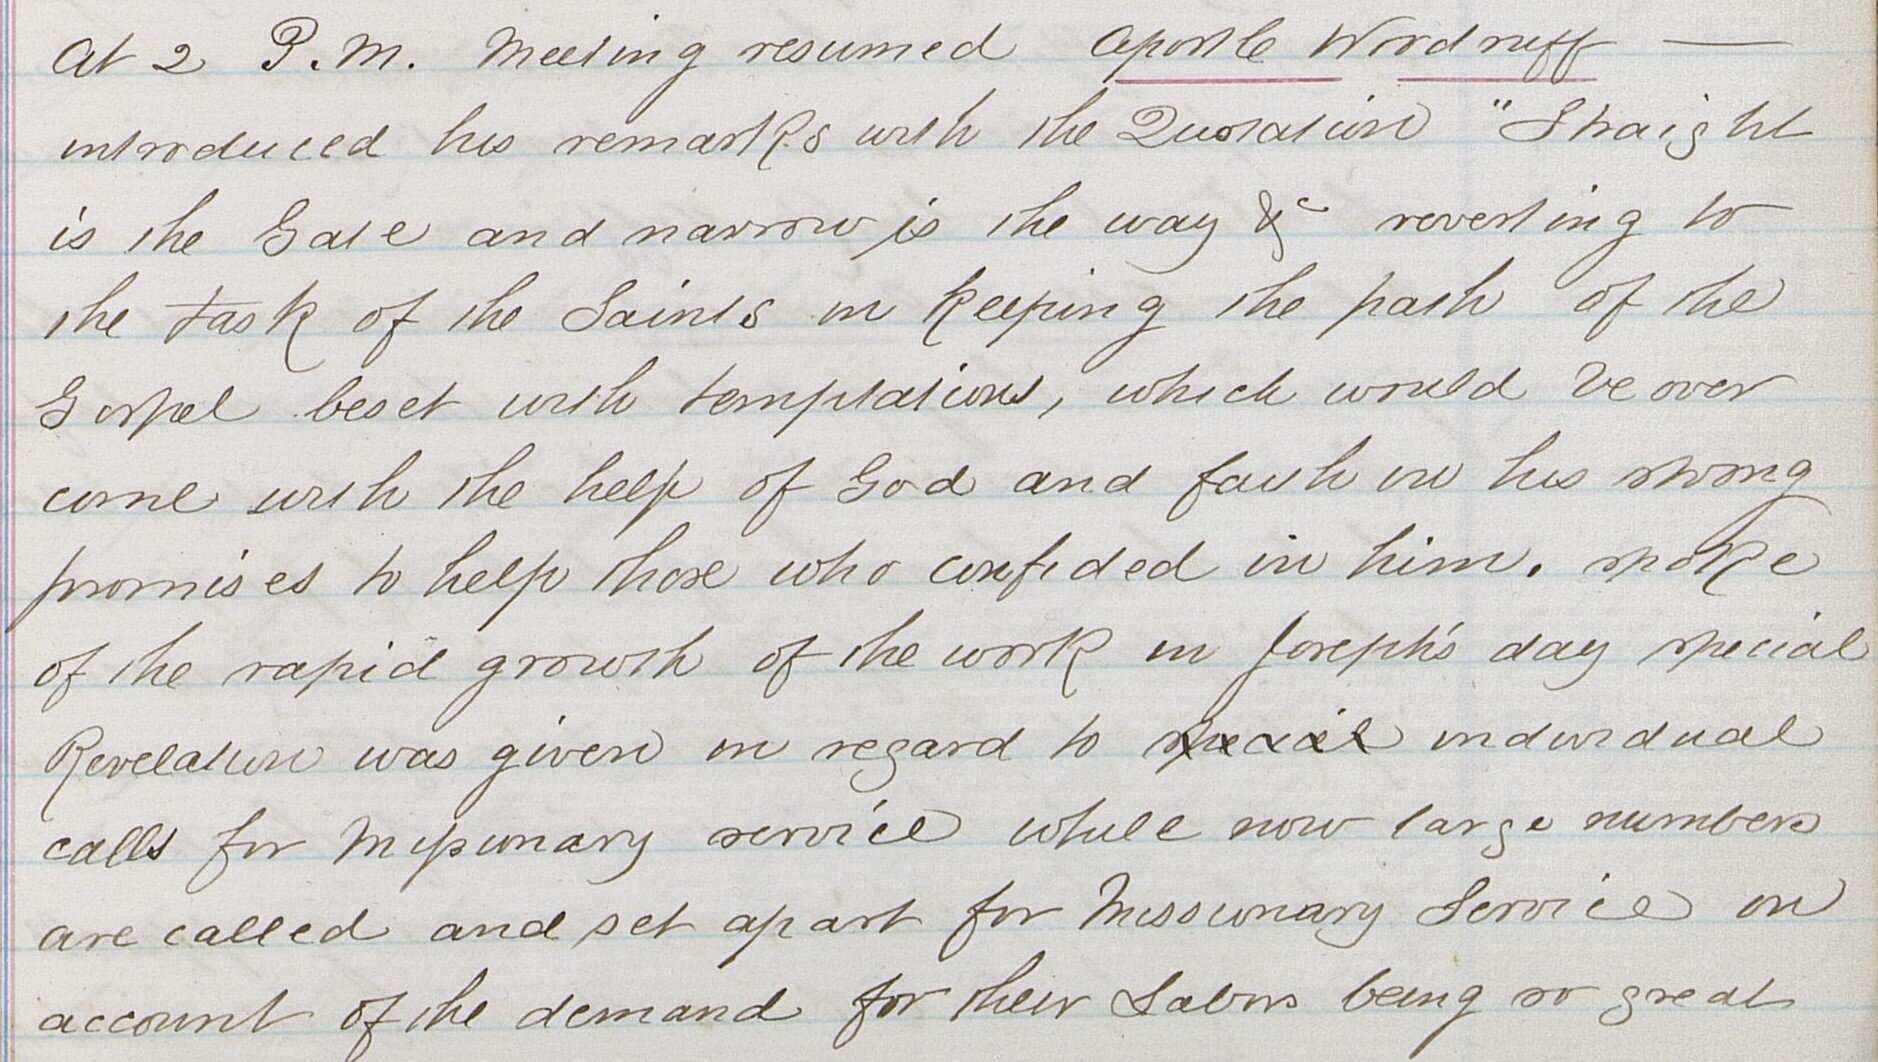 At 2 P.M. Meeting resumed Apostle Wordruff —
introduced his remarks with the Quotation "Straight
is the Gate and narrow is the way &c reverting to
the task of the Saints in keeping the path of the
Gospel beset with temptations, which would be over
come with the help of God and faith in his strong
promises to help those who confided in him. spoke
of the rapid growth of the work in Joseph's day special
Revelation was given in regard to special individual
calls for Missionary service while now large numbers
are called and set apart for Missionary Service on
account of the demand for their Labors being so great